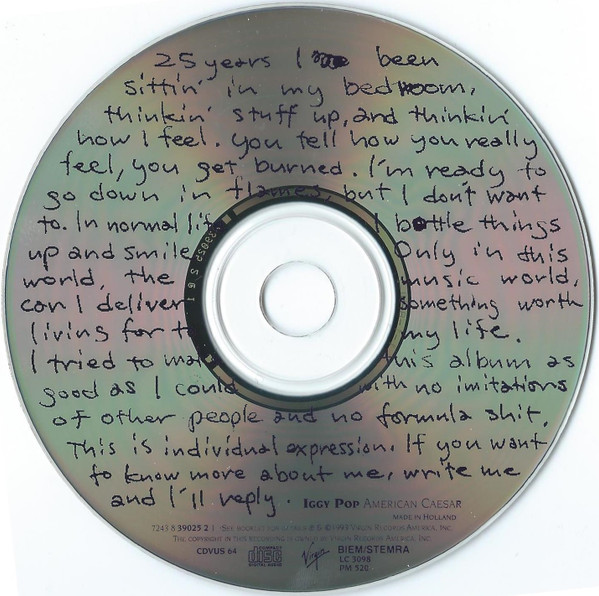 25 years I been
sittin' in my bedroom,
thinkin' stuff up, and thinkin'
how I feel. You tell how you really
feel, you get burned. I'm ready to
go down in flames, but I don't want
to. In normal lif I bottle things
up and smile Only in this
world, the music world,
can I deliver something worth
living for t my life.
I tried to ma this album as
good as I could with no imitations
of other people and no formula shit.
This is individual expression. If you want
to know more about me, write me
and I'll reply. IGGY POP AMERICAN CAESAR
MADE IN HOLLAND
7243 8 39025 2 1 ©1993 VIRGIN RECORDS AMERICA, INC.
THE COPYRIGHT IN THIS RECORDING IS OWNED BY VIRGIN RECORDS AMERICA, INC.
CDVUS 64 disc DIGITAL AUDIO Virgin BIEM/STEMRA
LC 3098
PM 520